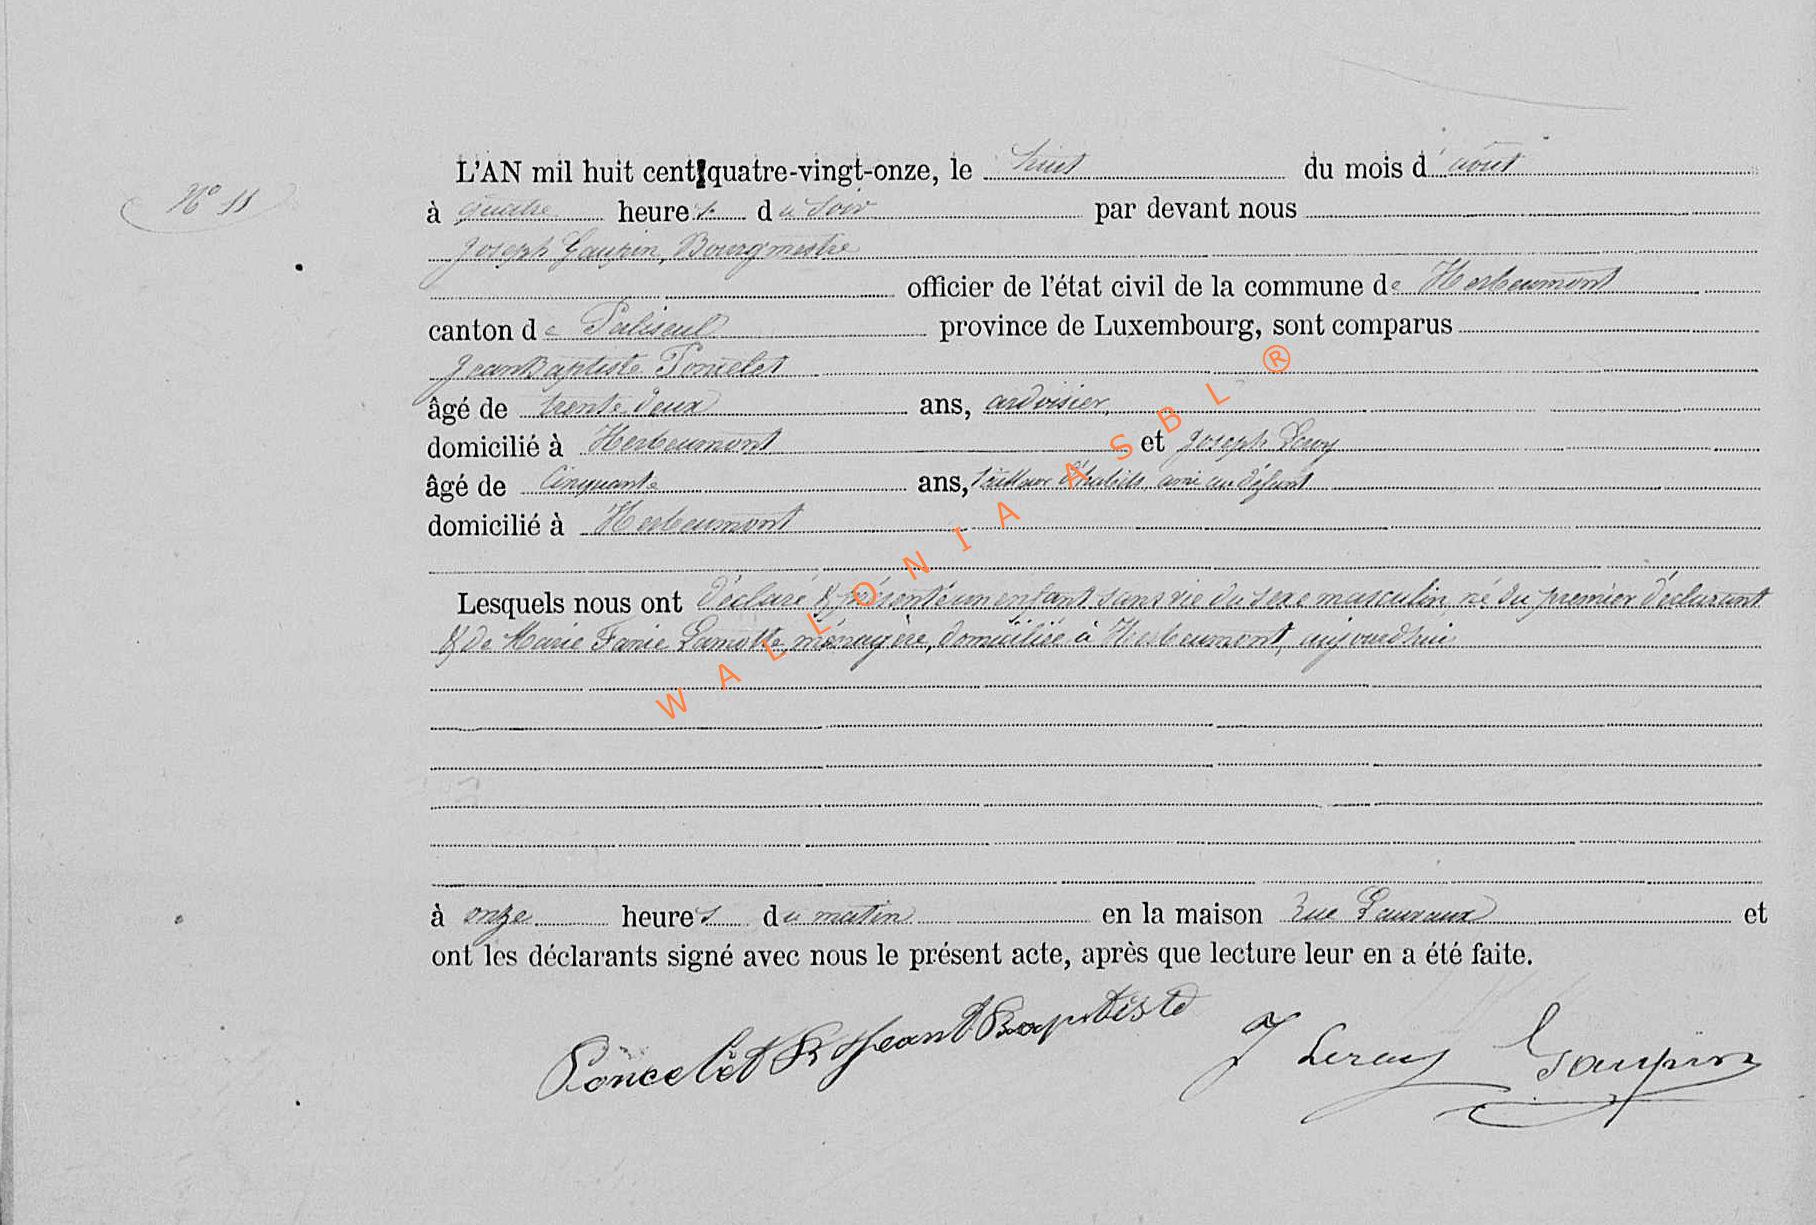 L'AN mil huit cent quatre-vingt-onze, le huit du mois d'août
N° 11
à quatre heures du soir par devant nous
Joseph Gaupin, Bourgmestre
officier de l'état civil de la commune de Herbeumont
canton de Paliseul province de Luxembourg, sont comparus
Jean Baptiste Poncelet
âgé de trente deux ans, ardoisier,
domicilié à Herbeumont et Joseph Leroy
âgé de Cinquante ans, tailleur d'habits, ami au défunt
domicilié à Herbeumont
Lesquels nous ont déclaré & présenté un enfant sans vie du sexe masculin, né du premier déclarant
& de Marie Fanie Lamotte, ménagère, domiciliée à Herbeumont, aujourd'hui
à onze heures du matin en la maison rue Lauraux et
ont les déclarants signé avec nous le présent acte, après que lecture leur en a été faite.
Poncelet Jean Baptiste J Leroy Gaupin
WALLONIA ASBL ®